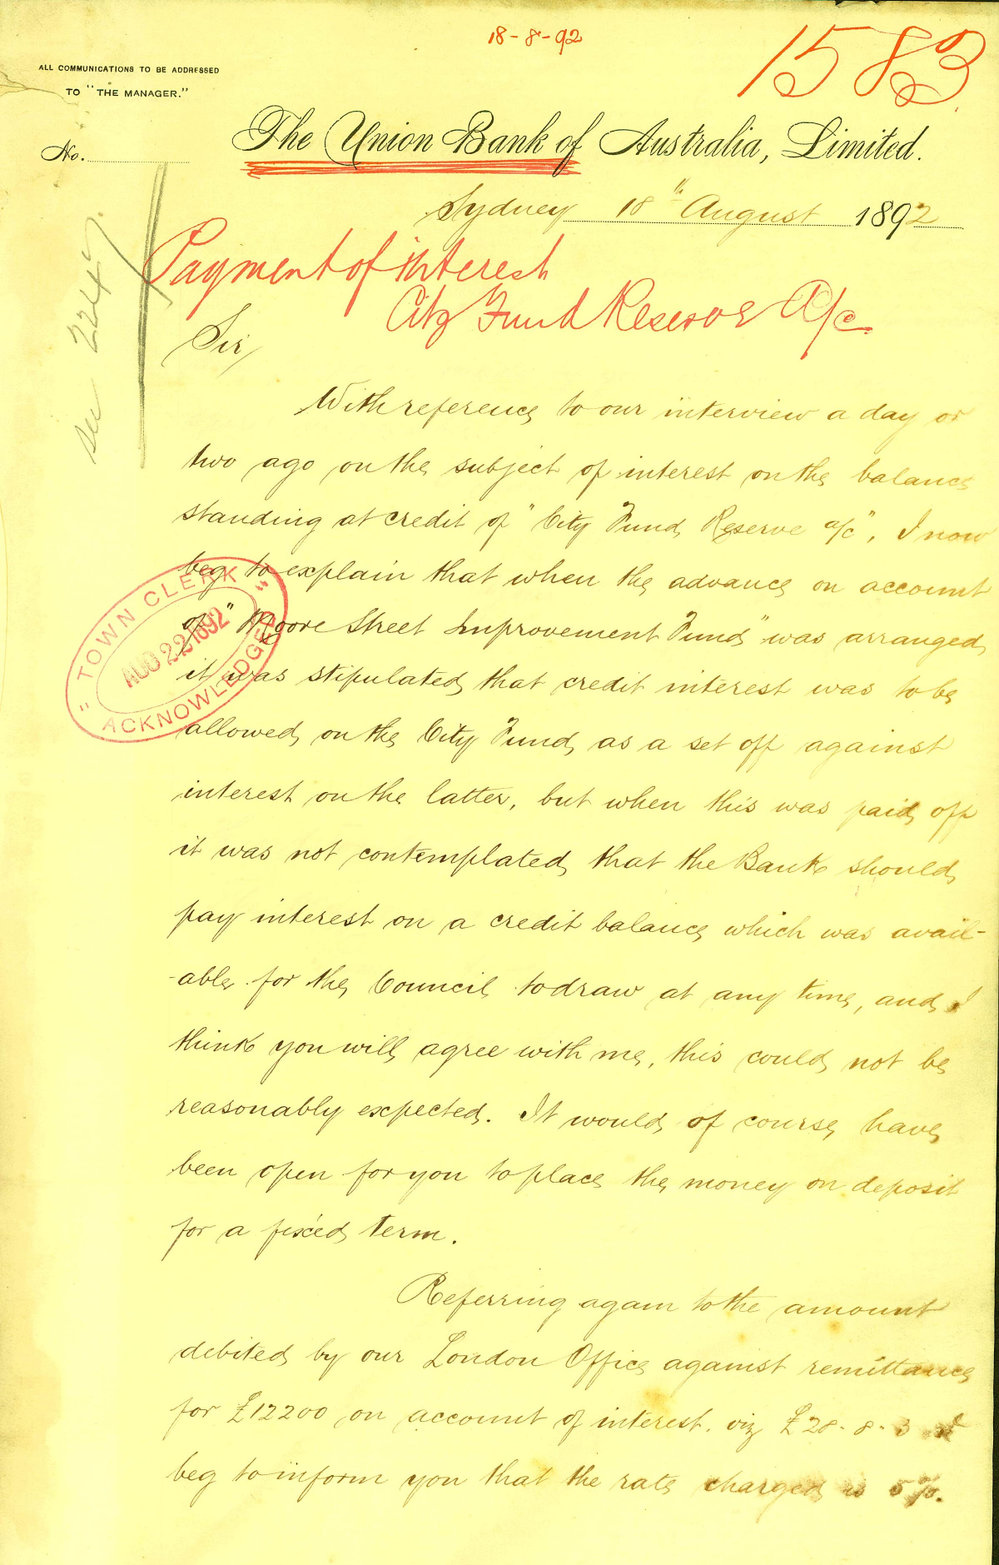 18-8-92
1583
ALL COMMUNICATIONS TO BE ADDRESSED
TO "THE MANAGER."
No.
The Union Bank of Australia, Limited.
Sydney 18th August 1892
see 2247
Payment of interest
City Fund Reserve A/c
Sir,
With reference to our interview a day or
two ago on the subject of interest on the balance
standing at credit of "City Fund Reserve a/c", I now
beg to explain that when the advance on account
of "Moore Street Improvement Fund" was arranged
it was stipulated that credit interest was to be
allowed on the City Fund, as a set off against
interest on the latter, but when this was paid off
it was not contemplated that the Bank should
pay interest on a credit balance which was avail-
-able for the Council to draw at any time, and I
think you will agree with me, this could not be
reasonably expected. It would of course have
been open for you to place the money on deposit
for a fixed term.
Referring again to the amount
debited by our London Office against remittance
for £12200 on account of interest. viz £28-8-3 I
beg to inform you that the rate charged is 5%.
"TOWN CLERK"
AUG 22 1892
ACKNOWLEDGED